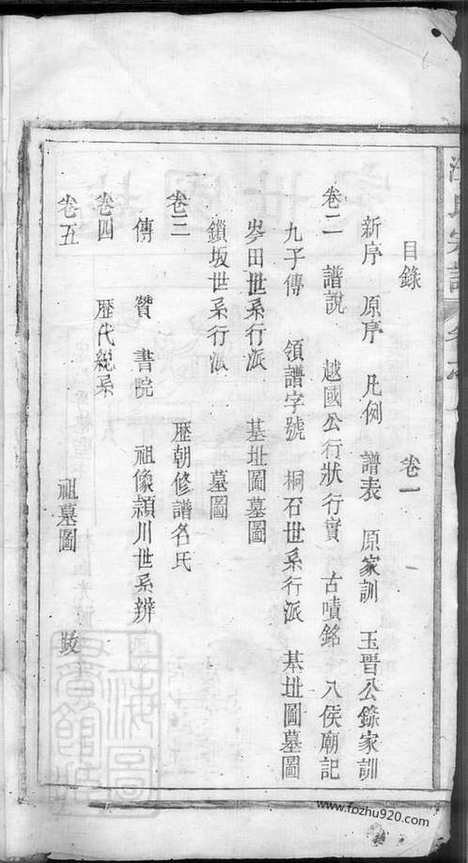 目錄 卷一
新序 原序 凡例 譜表 原家訓 玉晋公錄家訓
卷二 譜說 越國公行狀行實 古嘖銘 八侯廟記
九子傳 領譜字號 桐石世系行派 基址圖墓圖
岑田世系行派 基址圖墓圖
鎖坂世系行派 墓圖
卷三 歷朝修譜名氏
傳 贊 書院 祖像潁川世系辨
卷四 歷代統系
卷五 祖墓圖 跋
上海圖書館藏
www.fozhu920.com